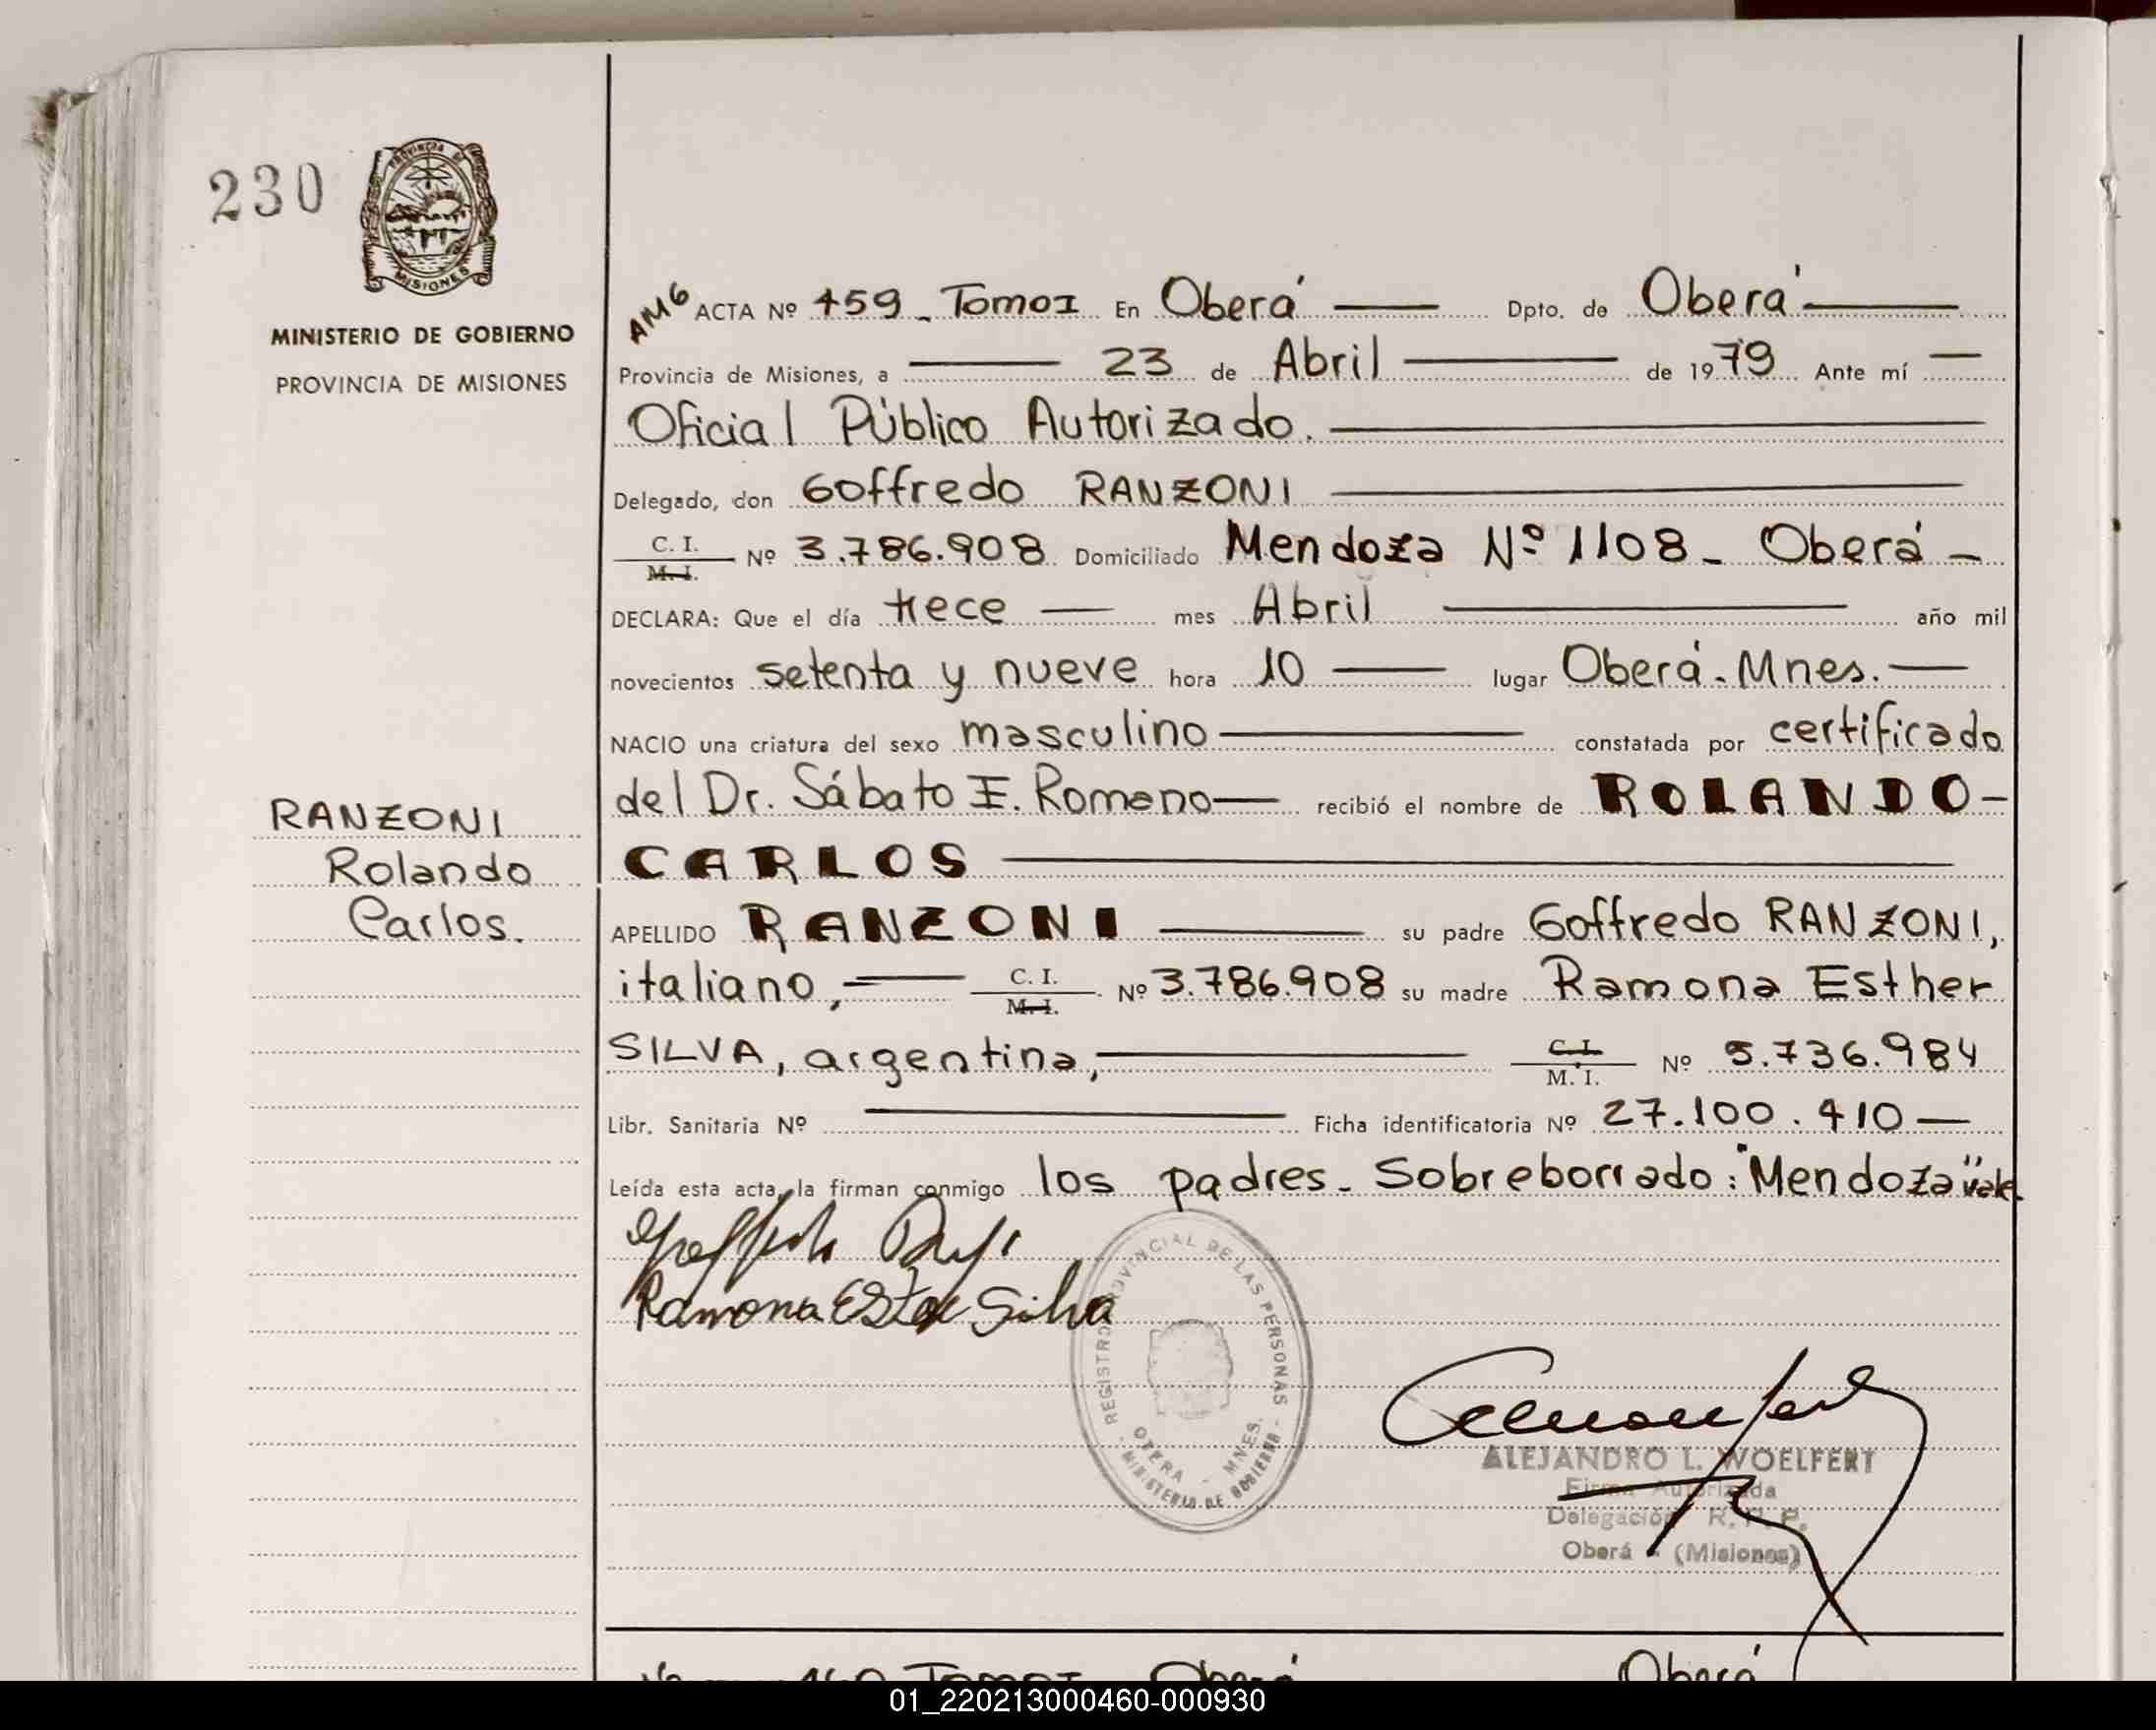 230
PROVINCIA DE
MISIONES
MINISTERIO DE GOBIERNO
PROVINCIA DE MISIONES
RANZONI
Rolando
Carlos.
AM6 ACTA Nº 459_ Tomo I En Oberá — Dpto. de Oberá —
Provincia de Misiones, a — 23 de Abril — de 1979 Ante mí —
Oficial Público Autorizado. —
Delegado, don Goffredo RANZONI —
C. I. / M. I. Nº 3.786.908 Domiciliado Mendoza Nº 1108 - Oberá -
DECLARA: Que el día trece — mes Abril — año mil
novecientos setenta y nueve hora 10 — lugar Oberá - Mnes. —
NACIO una criatura del sexo masculino — constatada por certificado
del Dr. Sábato E. Romano — recibió el nombre de ROLANDO -
CARLOS —
APELLIDO RANZONI — su padre Goffredo RANZONI,
italiano, — C. I. / M. I. Nº 3.786.908 su madre Ramona Esther
SILVA, argentina, — C. I. / M. I. Nº 5.736.984
Libr. Sanitaria Nº — Ficha identificatoria Nº 27.100.410 —
Leída esta acta, la firman conmigo los padres - Sobreborrado: "Mendoza" vale.
Ramona Ester Silva
REGISTRO PROVINCIAL DE LAS PERSONAS
OBERA - MNES.
MINISTERIO DE GOBIERNO
ALEJANDRO L. WOELFERT
Firma Autorizada
Delegación R. P. P.
Oberá - (Misiones)
460 Tomo I Oberá Oberá
01_220213000460-000930